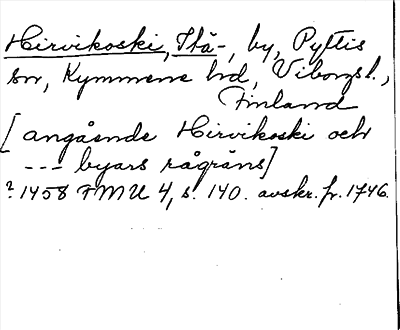 Hirvikoski, Itä-, by, Pyttis
sn, Kymmene hd, Viborgs l.,
Finland
[angående Hirvikoski och
--- byars rågräns]
? 1458 FMU 4, s. 140. avskr. fr. 1746.